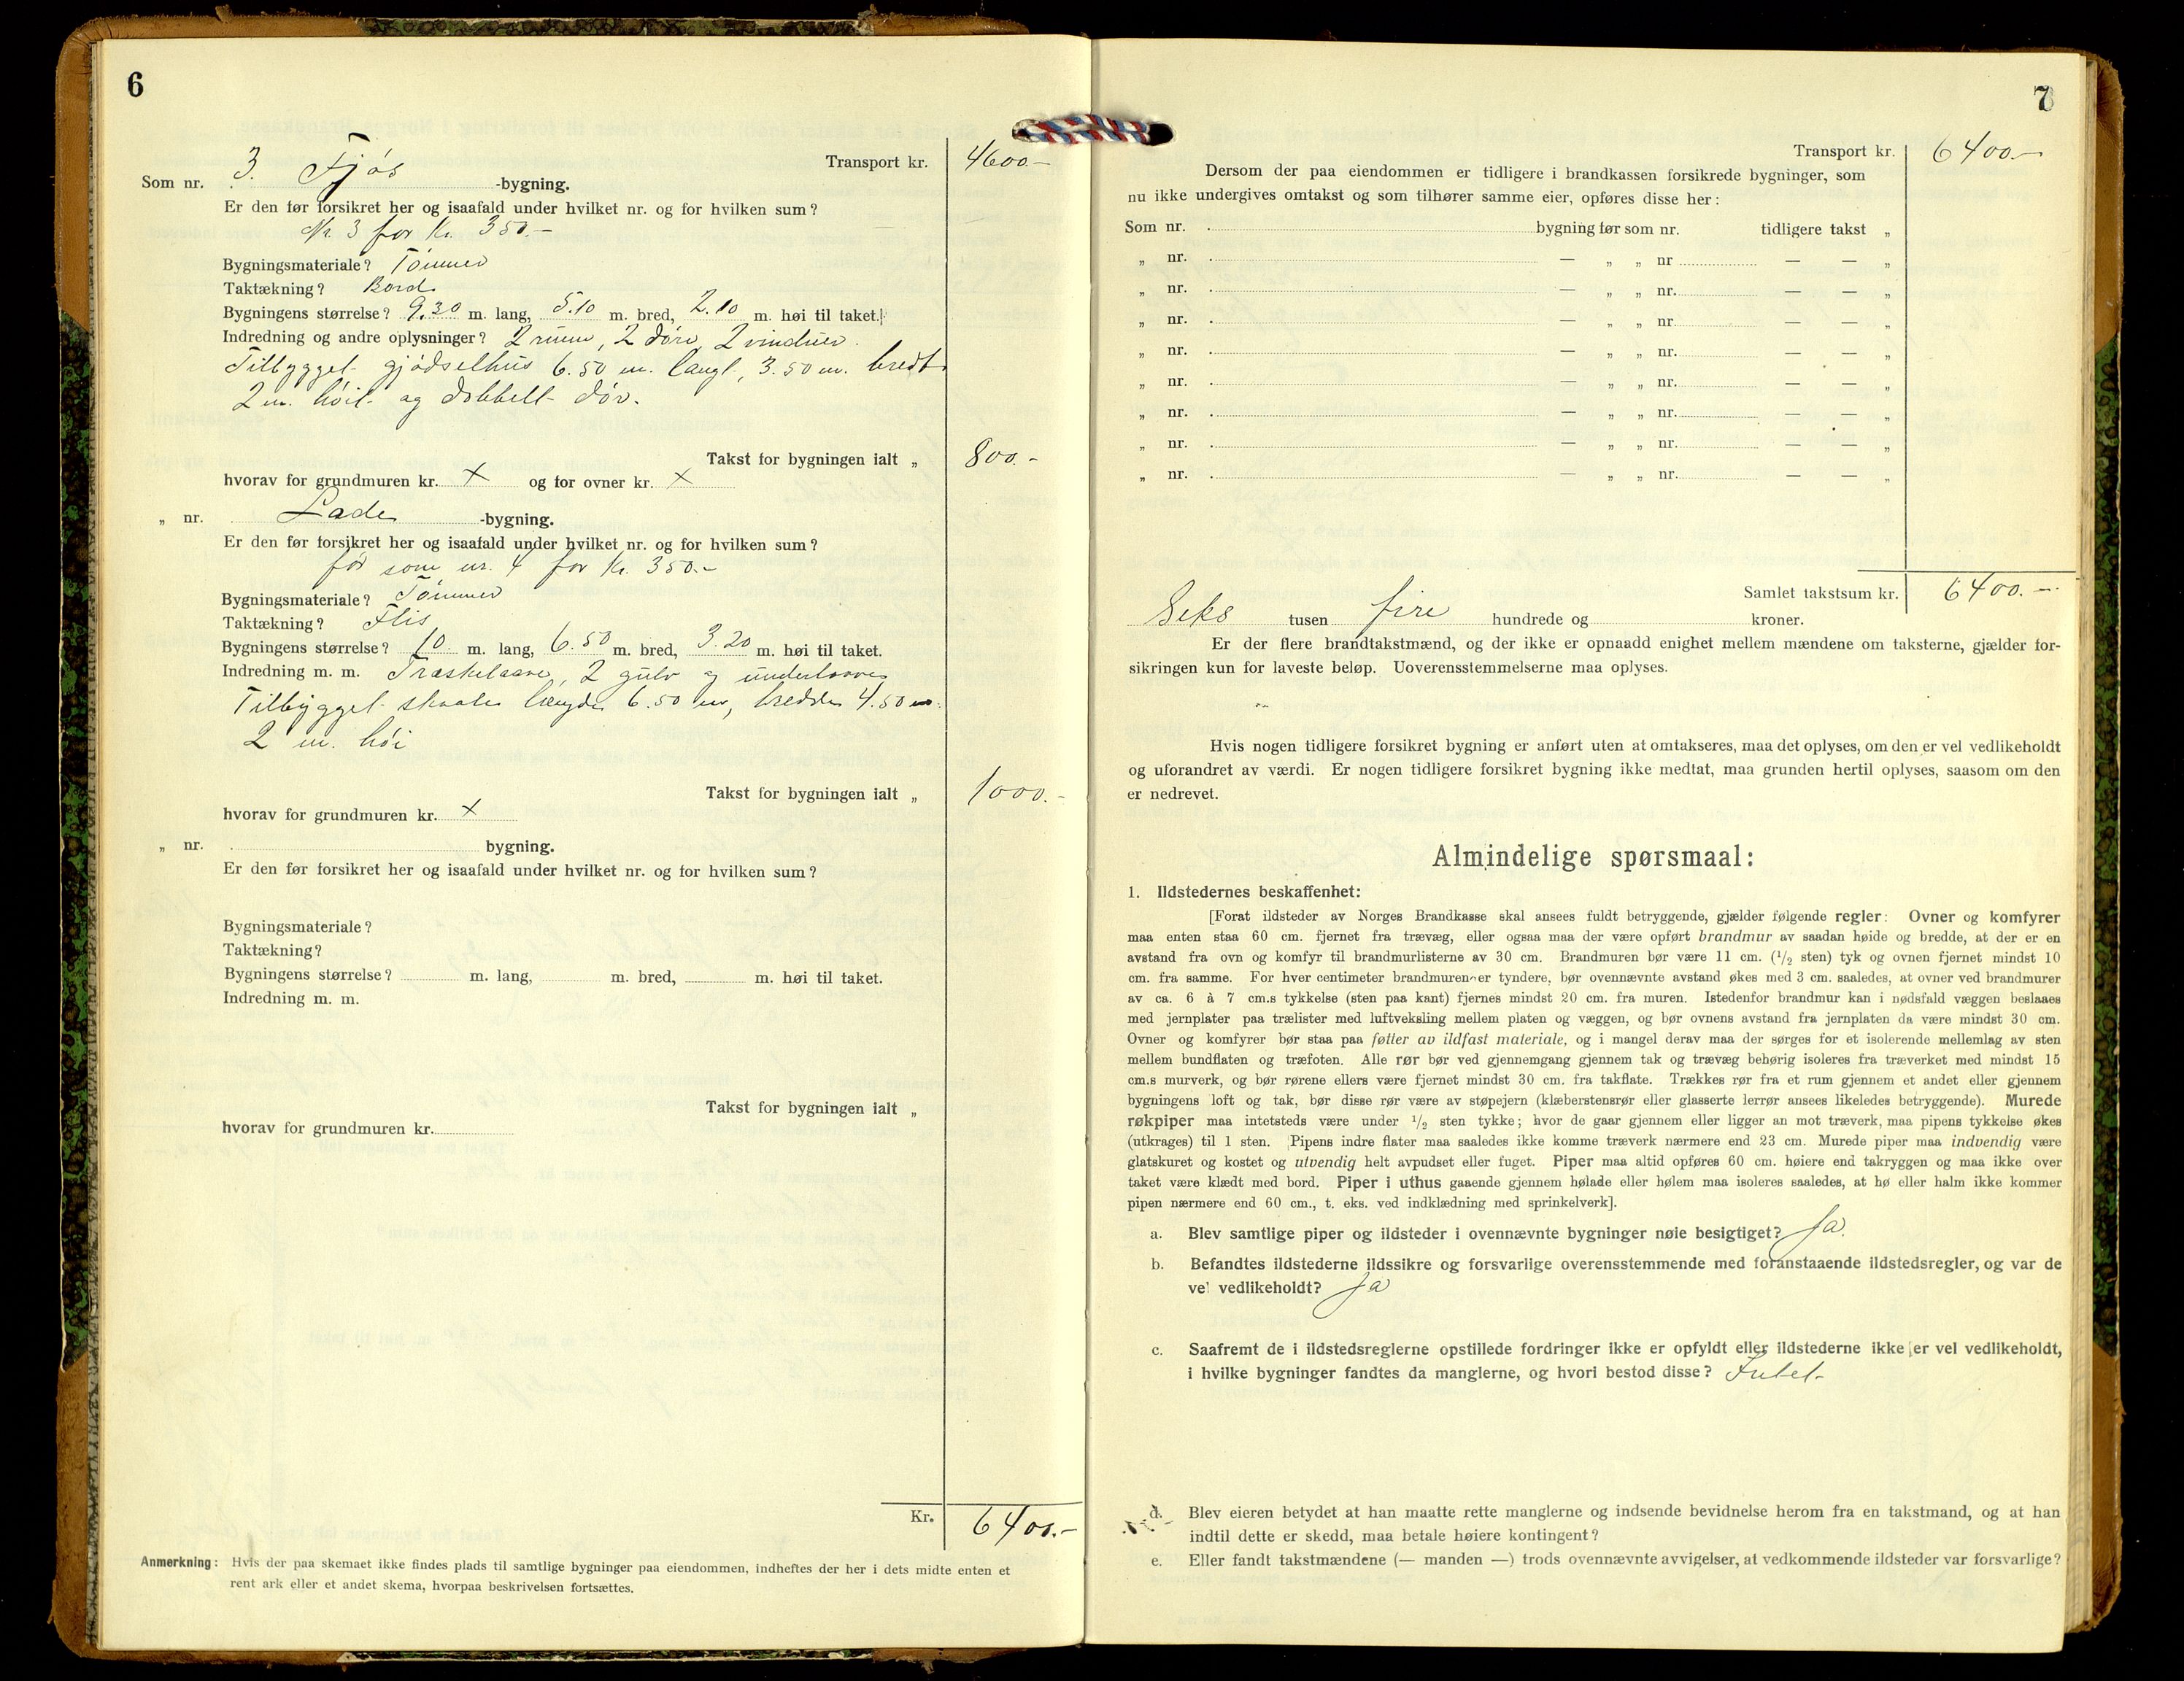 6
Transport kr. 4600.–
Som nr. 3. Fjøs -bygning.
Er den før forsikret her og isaafald under hvilket nr. og for hvilken sum?
Nr. 3 for Kr. 350.–
Bygningsmateriale? Tømmer
Taktækning? Bord
Bygningens størrelse? 9.30 m. lang, 5.10 m. bred, 2.10 m. høi til taket.
Indredning og andre oplysninger? 2 rum, 2 døre, 2 vinduer.
Tilbygget gjødselhus 6.50 m. langt, 3.50 m. bredt
2 m. høit og dobbelt dør.
Takst for bygningen ialt „ 800.–
hvorav for grundmuren kr. x og for ovner kr. x
„ nr. Lade -bygning.
Er den før forsikret her og isaafald under hvilket nr. og for hvilken sum?
før som nr. 4 for Kr. 350.–
Bygningsmateriale? Tømmer
Taktækning? Flis
Bygningens størrelse? 10. m. lang, 6.50 m. bred, 3.20 m. høi til taket.
Indredning m. m. Træskelaave, 2 gulv og underlaave
Tilbygget skaale længde 6.50 m, bredde 4.50 m.
2 m. høi
Takst for bygningen ialt „ 1000.–
hvorav for grundmuren kr. x
„ nr. bygning.
Er den før forsikret her og isaafald under hvilket nr. og for hvilken sum?
Bygningsmateriale?
Taktækning?
Bygningens størrelse? m. lang, m. bred, m. høi til taket.
Indredning m. m.
Takst for bygningen ialt „
hvorav for grundmuren kr.
Kr. 6400.–
Anmerkning: Hvis der paa skemaet ikke findes plads til samtlige bygninger paa eiendommen, indheftes der her i dets midte enten et
rent ark eller et andet skema, hvorpaa beskrivelsen fortsættes.
7
Transport kr. 6400.–
Dersom der paa eiendommen er tidligere i brandkassen forsikrede bygninger, som
nu ikke undergives omtakst og som tilhører samme eier, opføres disse her:
Som nr. bygning før som nr. tidligere takst „
„ nr. — „ „ nr — — „
„ nr. — „ „ nr. — — „
„ nr. — „ „ nr. — — „
„ nr. — „ „ nr. — — „
„ nr. — „ „ nr. — — „
„ nr. — „ „ nr. — — „
„ nr. — „ „ nr. — — „
„ nr. — „ „ nr. — — „
Samlet takstsum kr. 6400.–
Seks tusen fire hundrede og kroner.
Er der flere brandtakstmænd, og der ikke er opnaadd enighet mellem mændene om taksterne, gjælder for-
sikringen kun for laveste beløp. Uoverensstemmelserne maa oplyses.
Hvis nogen tidligere forsikret bygning er anført uten at omtakseres, maa det oplyses, om den er vel vedlikeholdt
og uforandret av værdi. Er nogen tidligere forsikret bygning ikke medtat, maa grunden hertil oplyses, saasom om den
er nedrevet.
Almindelige spørsmaal:
1. Ildstedernes beskaffenhet:
[Forat ildsteder av Norges Brandkasse skal ansees fuldt betryggende, gjælder følgende regler: Ovner og komfyrer
maa enten staa 60 cm. fjernet fra trævæg, eller ogsaa maa der være opført brandmur av saadan høide og bredde, at der er en
avstand fra ovn og komfyr til brandmurlisterne av 30 cm. Brandmuren bør være 11 cm. (1/2 sten) tyk og ovnen fjernet mindst 10
cm. fra samme. For hver centimeter brandmuren er tyndere, bør ovennævnte avstand økes med 3 cm. saaledes, at ovner ved brandmurer
av ca. 6 à 7 cm.s tykkelse (sten paa kant) fjernes mindst 20 cm. fra muren. Istedenfor brandmur kan i nødsfald væggen beslaaes
med jernplater paa trælister med luftveksling mellem platen og væggen, og bør ovnens avstand fra jernplaten da være mindst 30 cm.
Ovner og komfyrer bør staa paa føtter av ildfast materiale, og i mangel derav maa der sørges for et isolerende mellemlag av sten
mellem bundflaten og træfoten. Alle rør bør ved gjennemgang gjennem tak og trævæg behørig isoleres fra træverket med mindst 15
cm.s murverk, og bør rørene ellers være fjernet mindst 30 cm. fra takflate. Trækkes rør fra et rum gjennem et andet eller gjennem
bygningens loft og tak, bør disse rør være av støpejern (klæberstensrør eller glasserte lerrør ansees likeledes betryggende). Murede
røkpiper maa intetsteds være under 1/2 sten tykke; hvor de gaar gjennem eller ligger an mot træverk, maa pipens tykkelse økes
(utkrages) til 1 sten. Pipens indre flater maa saaledes ikke komme træverk nærmere end 23 cm. Murede piper maa indvendig være
glatskuret og kostet og utvendig helt avpudset eller fuget. Piper maa altid opføres 60 cm. høiere end takryggen og maa ikke over
taket være klædt med bord. Piper i uthus gaaende gjennem hølade eller hølem maa isoleres saaledes, at hø eller halm ikke kommer
pipen nærmere end 60 cm., t. eks. ved indklædning med sprinkelverk].
a. Blev samtlige piper og ildsteder i ovennævnte bygninger nøie besigtiget? Ja.
b. Befandtes ildstederne ildssikre og forsvarlige overensstemmende med foranstaaende ildstedsregler, og var de
vel vedlikeholdt? Ja
c. Saafremt de i ildstedsreglerne opstillede fordringer ikke er opfyldt eller ildstederne ikke er vel vedlikeholdt,
i hvilke bygninger fandtes da manglerne, og hvori bestod disse? Intet
d. Blev eieren betydet at han maatte rette manglerne og indsende bevidnelse herom fra en takstmand, og at han
indtil dette er skedd, maa betale høiere kontingent?
e. Eller fandt takstmændene (— manden —) trods ovennævnte avvigelser, at vedkommende ildsteder var forsvarlige?